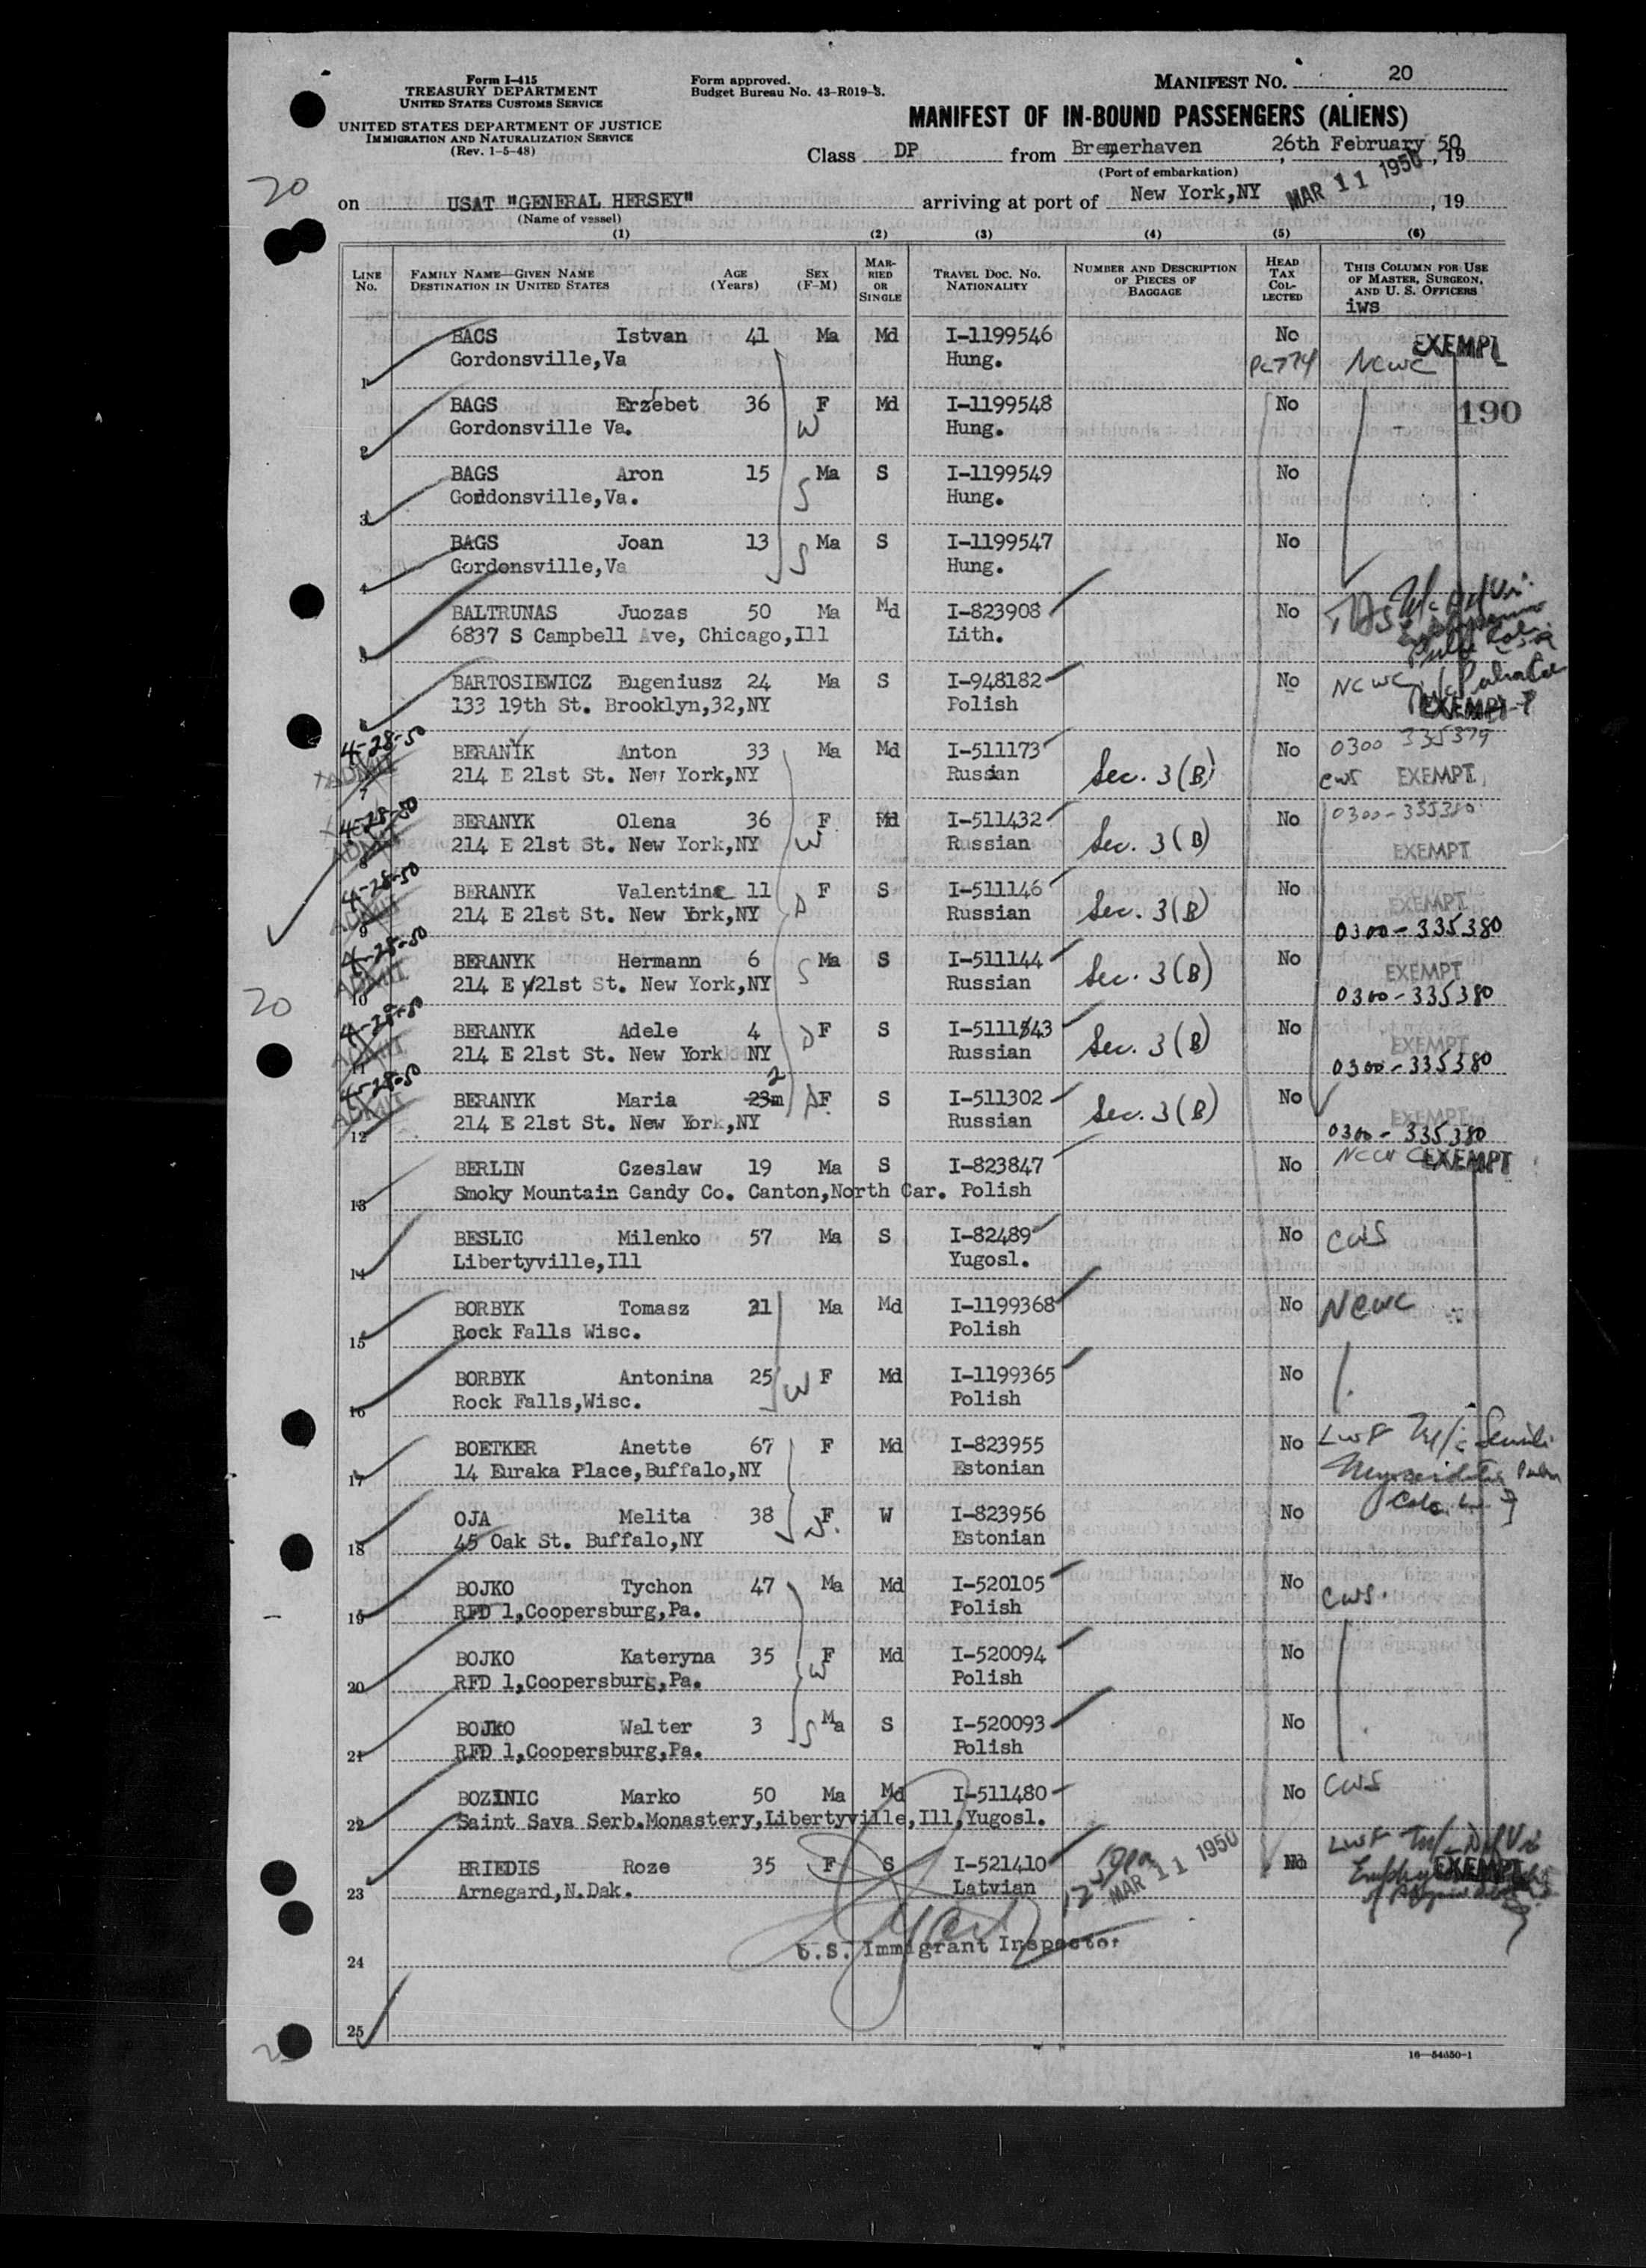 Form I-415
TREASURY DEPARTMENT
UNITED STATES CUSTOMS SERVICE
UNITED STATES DEPARTMENT OF JUSTICE
IMMIGRATION AND NATURALIZATION SERVICE
(Rev. 1-5-48)
Form approved.
Budget Bureau No. 43-R019-3.
MANIFEST NO. 20
MANIFEST OF IN-BOUND PASSENGERS (ALIENS)
Class DP from Bremerhaven, 26th February 50, 19
(Port of embarkation)
20
on USAT "GENERAL HERSEY" arriving at port of New York,NY MAR 11 1950, 19
(Name of vessel)
(1) (2) (3) (4) (5) (6)
LINE No. FAMILY NAME—GIVEN NAME DESTINATION IN UNITED STATES AGE (Years) SEX (F-M) MARRIED OR SINGLE TRAVEL DOC. NO. NATIONALITY NUMBER AND DESCRIPTION OF PIECES OF BAGGAGE HEAD TAX COLLECTED THIS COLUMN FOR USE OF MASTER, SURGEON, AND U. S. OFFICERS
iws
BAGS Istvan 41 Ma Md I-1199546 No EXEMPT
1 Gordonsville,Va Hung. NCWC
BAGS Erzebet 36 F Md I-1199548 No 190
2 Gordonsville Va. W Hung.
BAGS Aron 15 Ma S I-1199549 No
3 Gordonsville,Va. S Hung.
BAGS Joan 13 Ma S I-1199547 No
4 Gordonsville,Va S Hung.
BALTRUNAS Juozas 50 Ma Md I-823908 No
5 6837 S Campbell Ave, Chicago,Ill Lith.
BARTOSIEWICZ Eugeniusz 24 Ma S I-948182 No NCWC
6 133 19th St. Brooklyn,32,NY Polish EXEMPT
4-28-50 BERANYK Anton 33 Ma Md I-511173 No 0300 335379
ADMIT 7 214 E 21st St. New York,NY Russian Sec. 3(B) CWS EXEMPT
4-28-50 BERANYK Olena 36 F Md I-511432 No 0300-335380
ADMIT 8 214 E 21st St. New York,NY W Russian Sec. 3(B) EXEMPT
4-28-50 BERANYK Valentine 11 F S I-511146 No EXEMPT
ADMIT 9 214 E 21st St. New York,NY D Russian Sec. 3(B) 0300-335380
4-28-50 BERANYK Hermann 6 S Ma S I-511144 No EXEMPT
ADMIT 10 214 E 21st St. New York,NY Russian Sec. 3(B) 0300-335380
4-28-50 BERANYK Adele 4 F S I-511143 No EXEMPT
ADMIT 11 214 E 21st St. New York NY D Russian Sec. 3(B) 0300-335380
4-28-50 BERANYK Maria 23m 2 D F S I-511302 No EXEMPT
ADMIT 12 214 E 21st St. New York,NY Russian Sec. 3(B) 0300-335380
BERLIN Czeslaw 19 Ma S I-823847 No EXEMPT
13 Smoky Mountain Candy Co. Canton,North Car. Polish
BESLIC Milenko 57 Ma S I-82489 No CWS
14 Libertyville,Ill Yugosl.
BORBYK Tomasz 21 Ma Md I-1199368 No NCWC
15 Rock Falls Wisc. Polish
BORBYK Antonina 25 W F Md I-1199365 No
16 Rock Falls,Wisc. Polish
BOETKER Anette 67 F Md I-823955 No LWF
17 14 Euraka Place,Buffalo,NY Estonian
OJA Melita 38 F W I-823956 No
18 45 Oak St. Buffalo,NY Estonian
BOJKO Tychon 47 Ma Md I-520105 No CWS.
19 RFD 1,Coopersburg,Pa. Polish
BOJKO Kateryna 35 F Md I-520094 No
20 RFD 1,Coopersburg,Pa. W Polish
BOJKO Walter 3 Ma S I-520093 No
21 RFD 1,Coopersburg,Pa. S Polish
BOZINIC Marko 50 Ma Md I-511480 No CWS
22 Saint Sava Serb.Monastery,Libertyville,Ill,Yugosl.
BRIEDIS Roze 35 F S I-521410 MAR 11 1950 No LWF
23 Arnegard,N.Dak. Latvian EXEMPT
U.S. Immigrant Inspector
24
25
20
16—54650-1